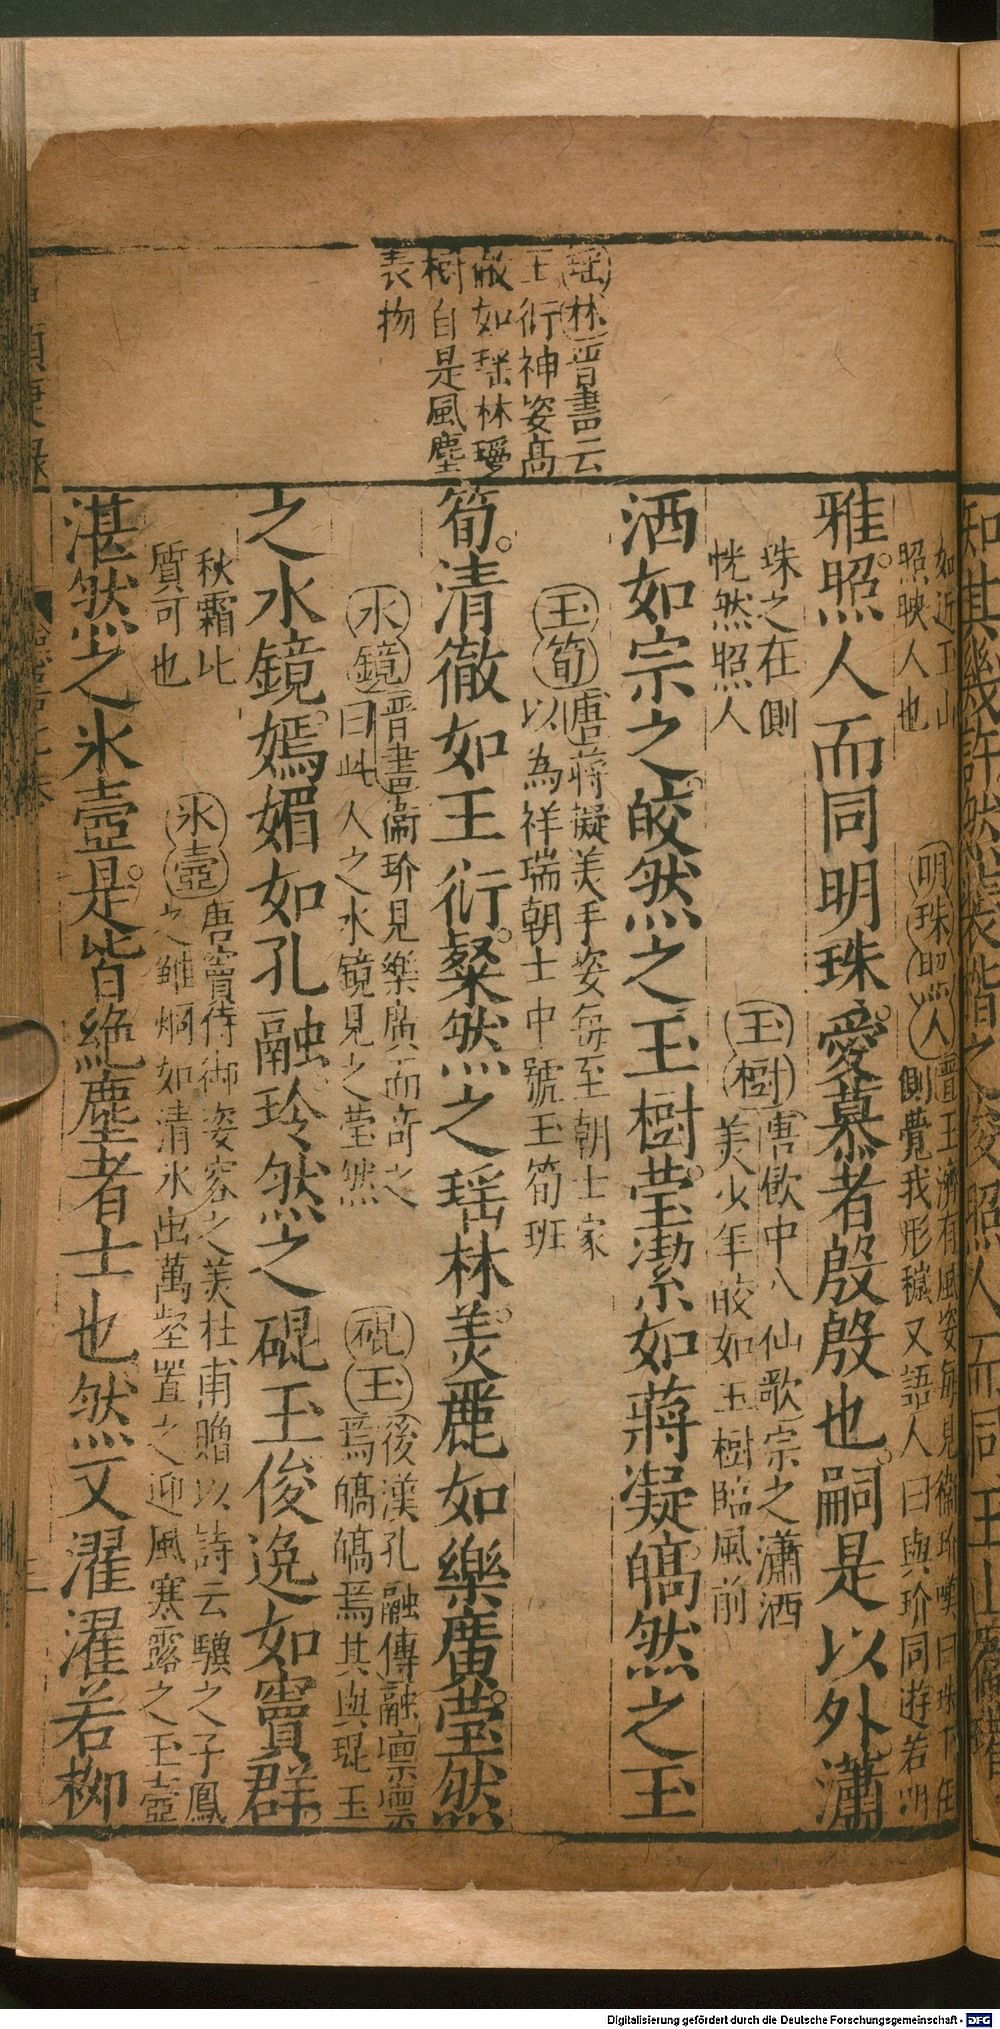 瑤林晉書云
王衍神姿高
徹如瑤林瓊
樹自是風塵
表物
如近玉山
照映人也
明珠照人
晉王濟有風姿每見衛玠嘆曰珠
側覺我形穢又語人曰與玠同遊若明
雅照人而同明珠愛慕者殷殷也嗣是以外瀟
珠之在側
恍然照人
玉樹
唐飲中八仙歌宗之瀟洒
美少年皎如玉樹臨風前
洒如宗之皎然之玉樹瑩潔如蔣凝皜然之玉
玉筍
唐蔣凝美手姿每至朝士家
以為祥瑞朝士中號玉筍班
筍清徹如王衍粲然之瑤林美麗如樂廣瑩然
水鏡
晉書衞玠見樂廣而奇之
曰此人之水鏡見之瑩然
硯玉
後漢孔融傳融凛凛
焉皜皜焉其與琨玉
之水鏡嫣媚如孔融玲然之硯玉俊逸如竇群
秋霜比
質可也
氷壺
唐竇侍御姿容之美杜甫贈以詩云驥之子鳳
之雛烱如清氷出萬壑置之迎風寒露之玉壺
湛然之氷壺是皆絶塵者士也然又濯濯若柳
知其幾許然
照人而同玉山
Digitalisierung gefördert durch die Deutsche Forschungsgemeinschaft - DFG